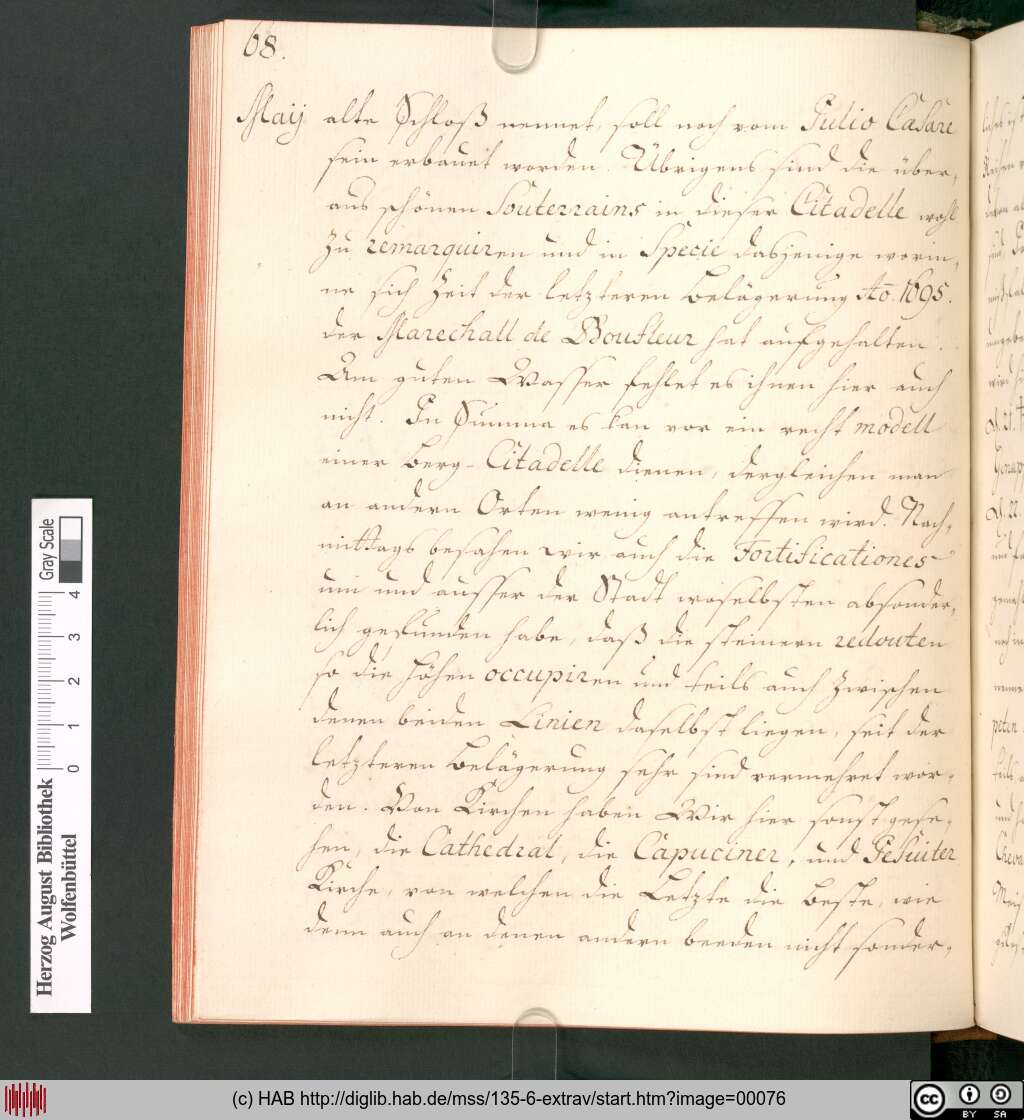 68.
Maij alte Schloß nennet, soll noch vom Julio Cæsare
sein erbauet worden. Übrigens sind die über,
aus schönen Souterrains in dieser Citadelle wohl
zu remarquiren und in Specie dasjenige worin,
ne sich Zeit der letzteren Belägerung Ao. 1695.
der Marechall de Boufleur hat aufgehalten.
Am guten Wasser fehlet es ihnen hier auch
nicht. In Summa es kan vor ein recht modell
einer Berg-Citadelle dienen, dergleichen man
an andern Orten wenig antreffen wird. Nach,
mittags besahen wir auch die Fortificationes
um und ausser der Stadt woselbsten absonder,
lich gefunden habe, daß die steinern redouten
so die Höhen occupiren und teils auch zwischen
denen beiden Linien daselbst liegen, seit der
letzteren Belägerung sehr sind vermehret wor,
den. Von Kirchen haben Wir hier sonst gese,
hen, die Cathedral, die Capuciner, und Jesuiter
Kirche, von welchen die Letzte die beste, wie
denn auch an denen andern beeden nicht sonder,
Gray Scale
0 1 2 3 4
Herzog August Bibliothek
Wolfenbüttel
(c) HAB http://diglib.hab.de/mss/135-6-extrav/start.htm?image=00076
cc BY SA